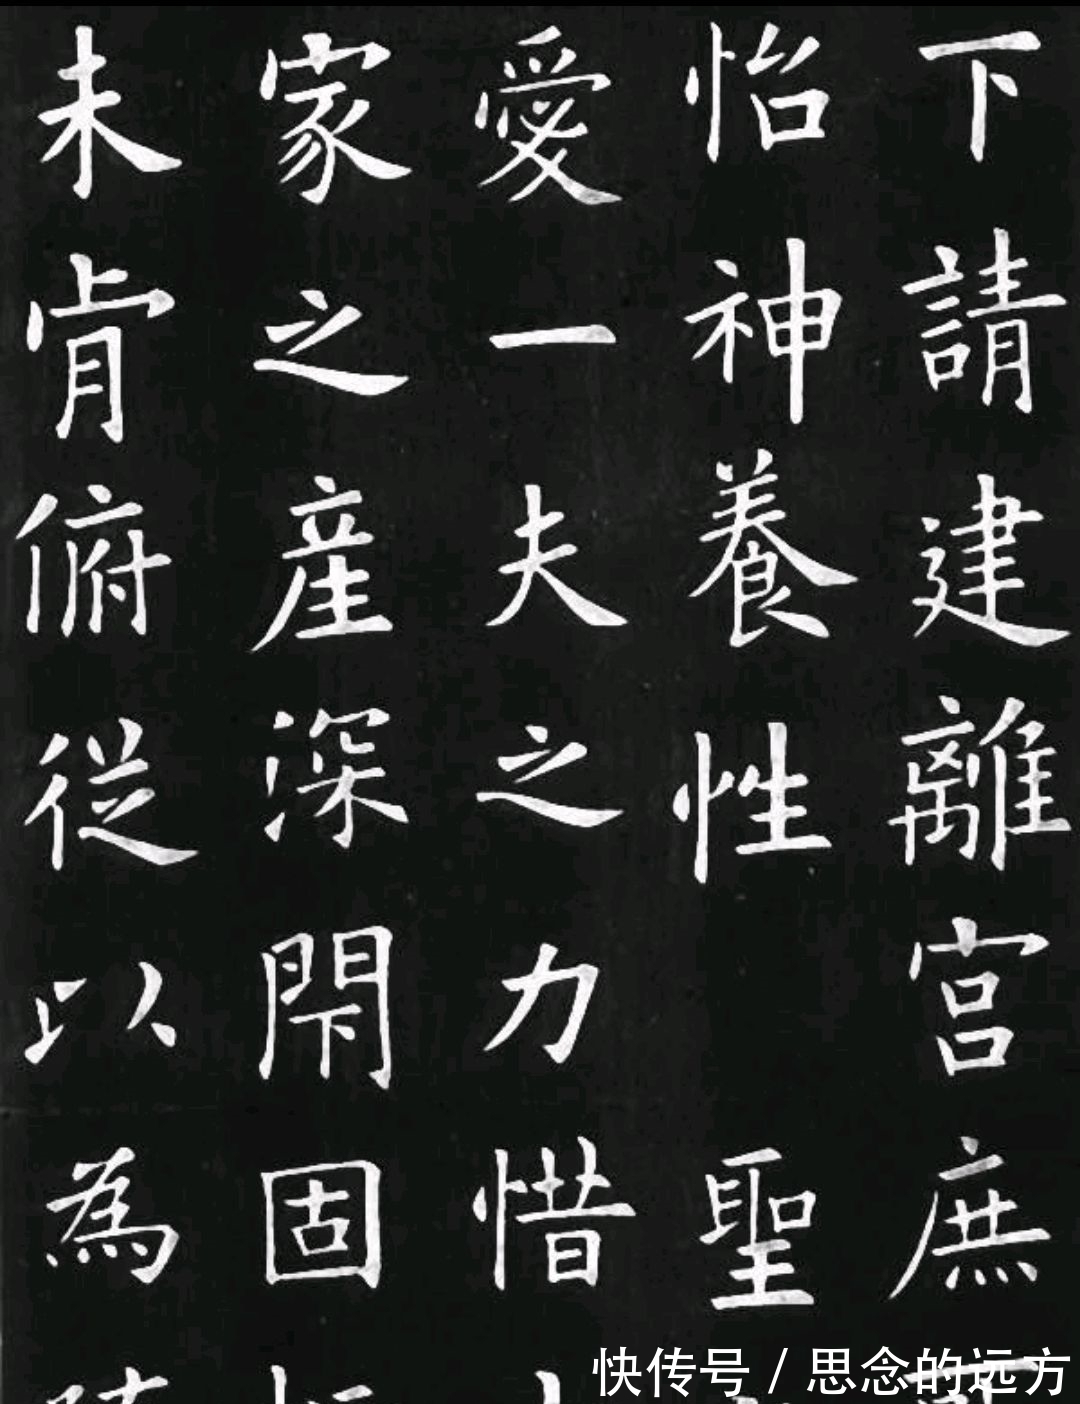 下請建離宫庶
怡神養性 聖
愛一夫之力惜
家之産深閇固
未肯俯従以為
快传号 / 思念的远方